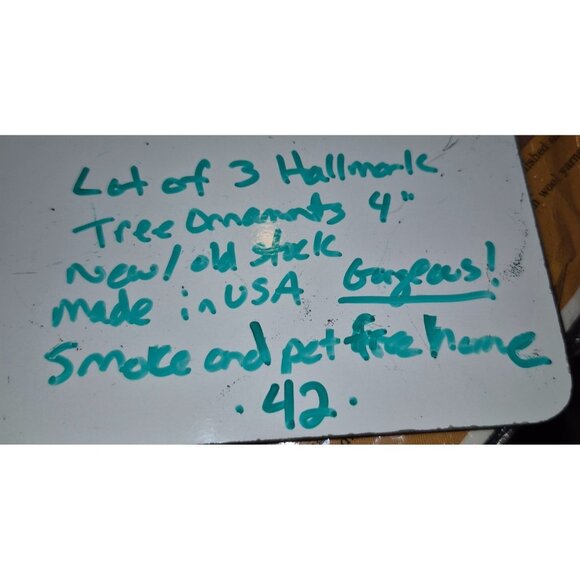 Lot of 3 Hallmark
Tree Ornaments 4"
New/old stock
made in USA Gorgeous!
Smoke and pet free home
· 42 ·